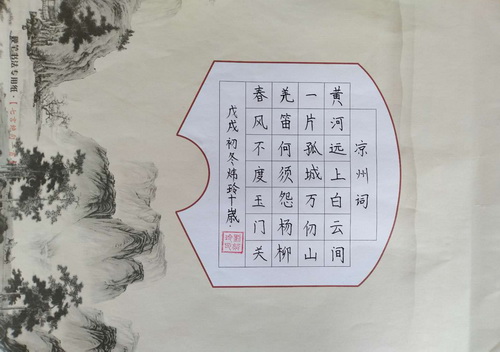 凉州词
黄河远上白云间
一片孤城万仞山
羌笛何须怨杨柳
春风不度玉门关
戊戌初冬炜玲十嵗
书法专用纸